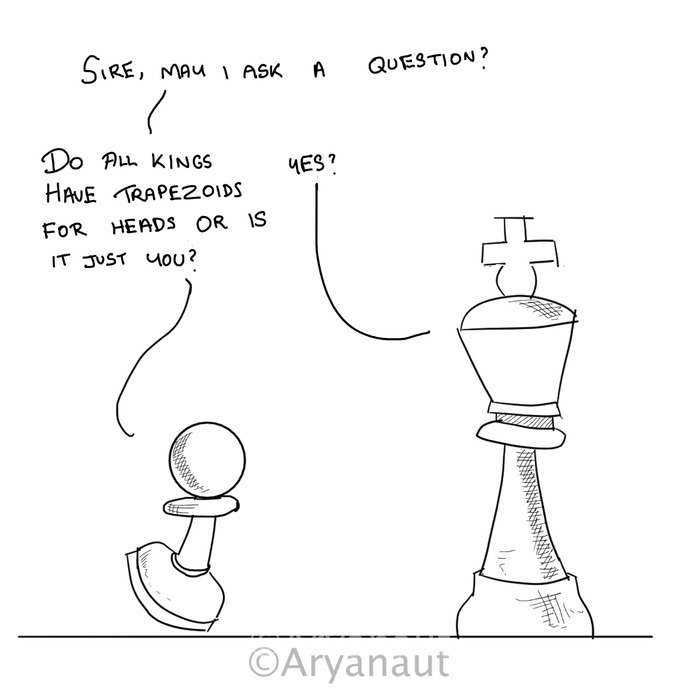 SIRE, MAY I ASK A QUESTION?
YES?
DO ALL KINGS
HAVE TRAPEZOIDS
FOR HEADS OR IS
IT JUST YOU?
©Aryanaut